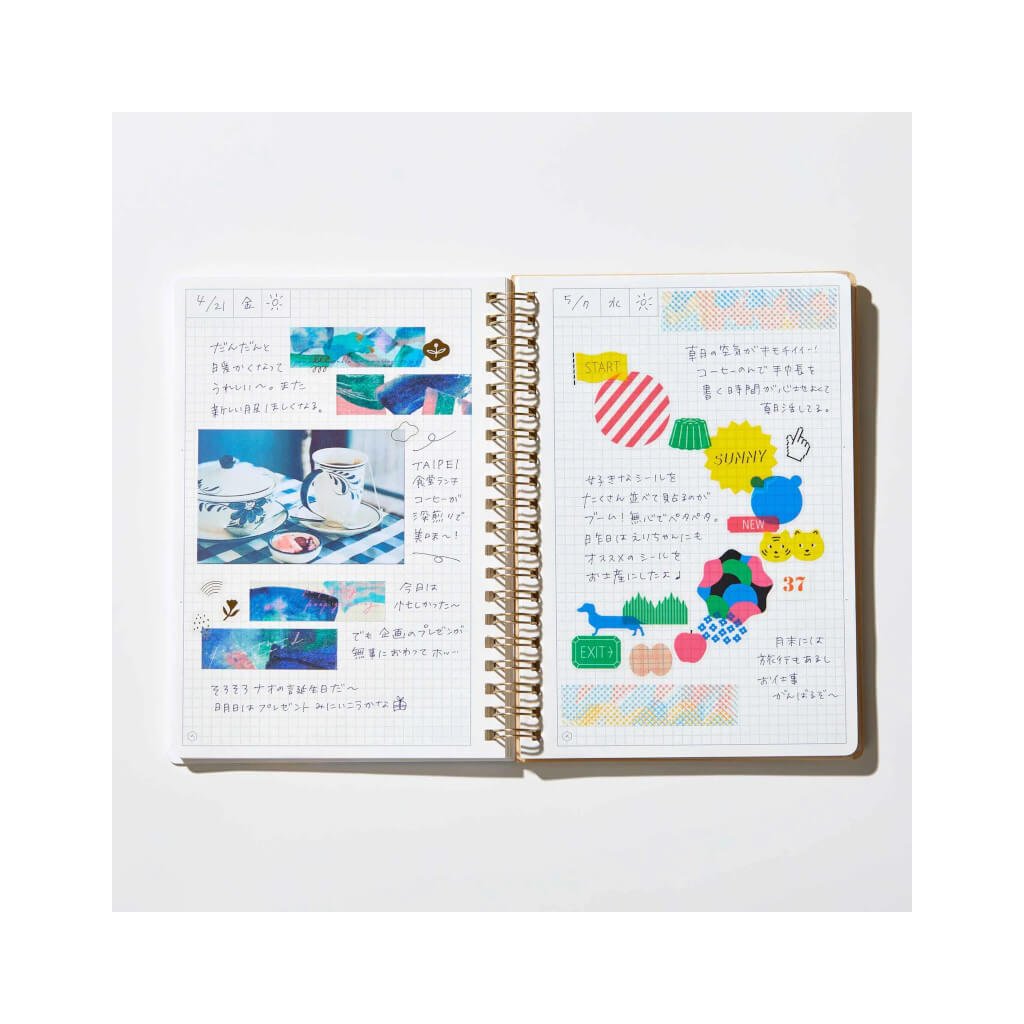 4/21 金
だんだんと
暖かくなって
うれしい〜。また
新しい服ほしくなる。
TAIPEI
食堂ランチ
コーヒーが
深煎りで
美味〜!
今日は
忙しかった〜
でも 企画のプレゼンが
無事におわって ホッ…
そろそろ ナオの誕生日だ〜
明日はプレゼント みにいこうかな
5/7 水
朝の空気がキモチイイー!
コーヒーのんで 手帳を
書く時間が心地よくて
朝活してる。
START
SUNNY
好きなシールを
たくさん並べて貼るのが
ブーム!無心でペタペタ。
昨日はえりちゃんにも
オススメのシールを
お土産にしたよ♪
NEW
37
EXIT→
月末には
旅行もあるし
お仕事
がんばるぞ〜